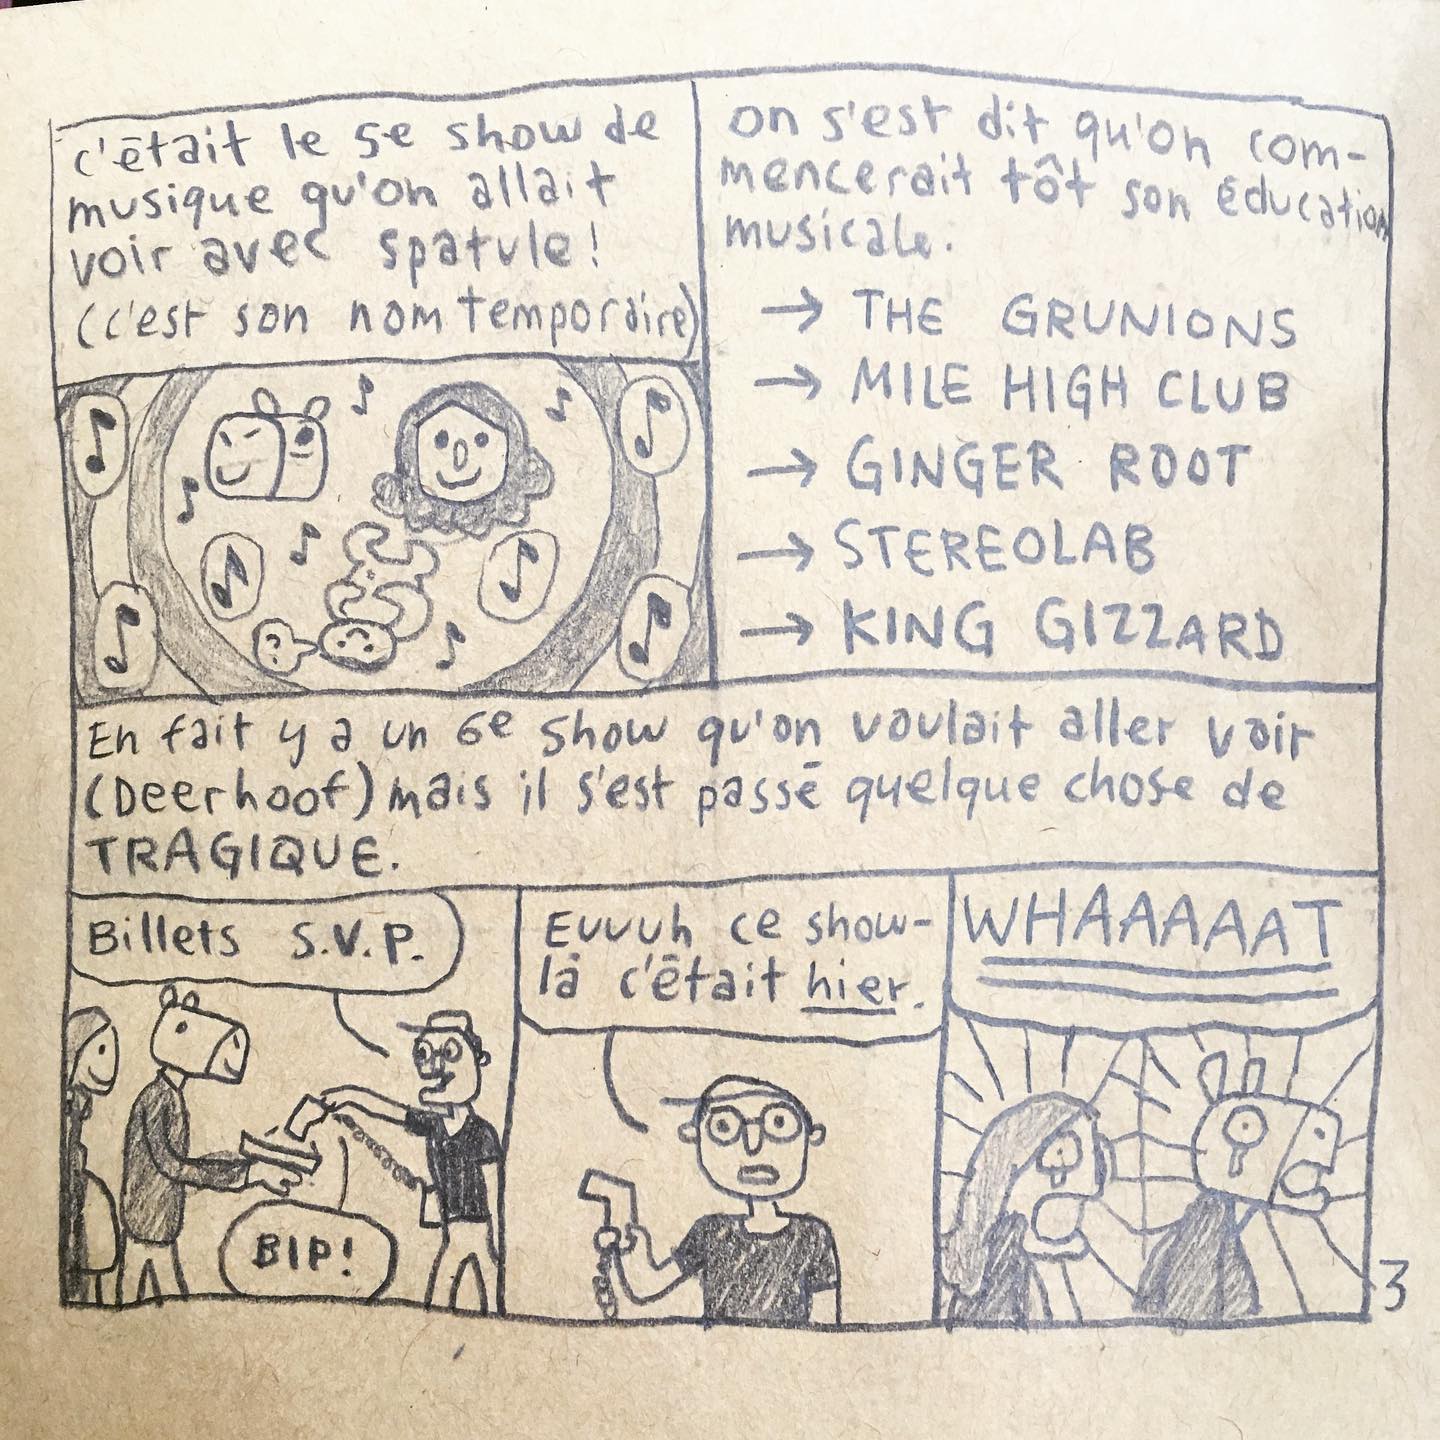 c'était le 5e show de
musique qu'on allait
voir avec spatule !
(c'est son nom temporaire)
on s'est dit qu'on com-
mencerait tôt son éducation
musicale.
→ THE GRUNIONS
→ MILE HIGH CLUB
→ GINGER ROOT
→ STEREOLAB
→ KING GIZZARD
En fait y a un 6e show qu'on voulait aller voir
(Deerhoof) mais il s'est passé quelque chose de
TRAGIQUE.
Billets S.V.P.
BIP!
Euuuh ce show-
là c'était hier.
WHAAAAAT
3